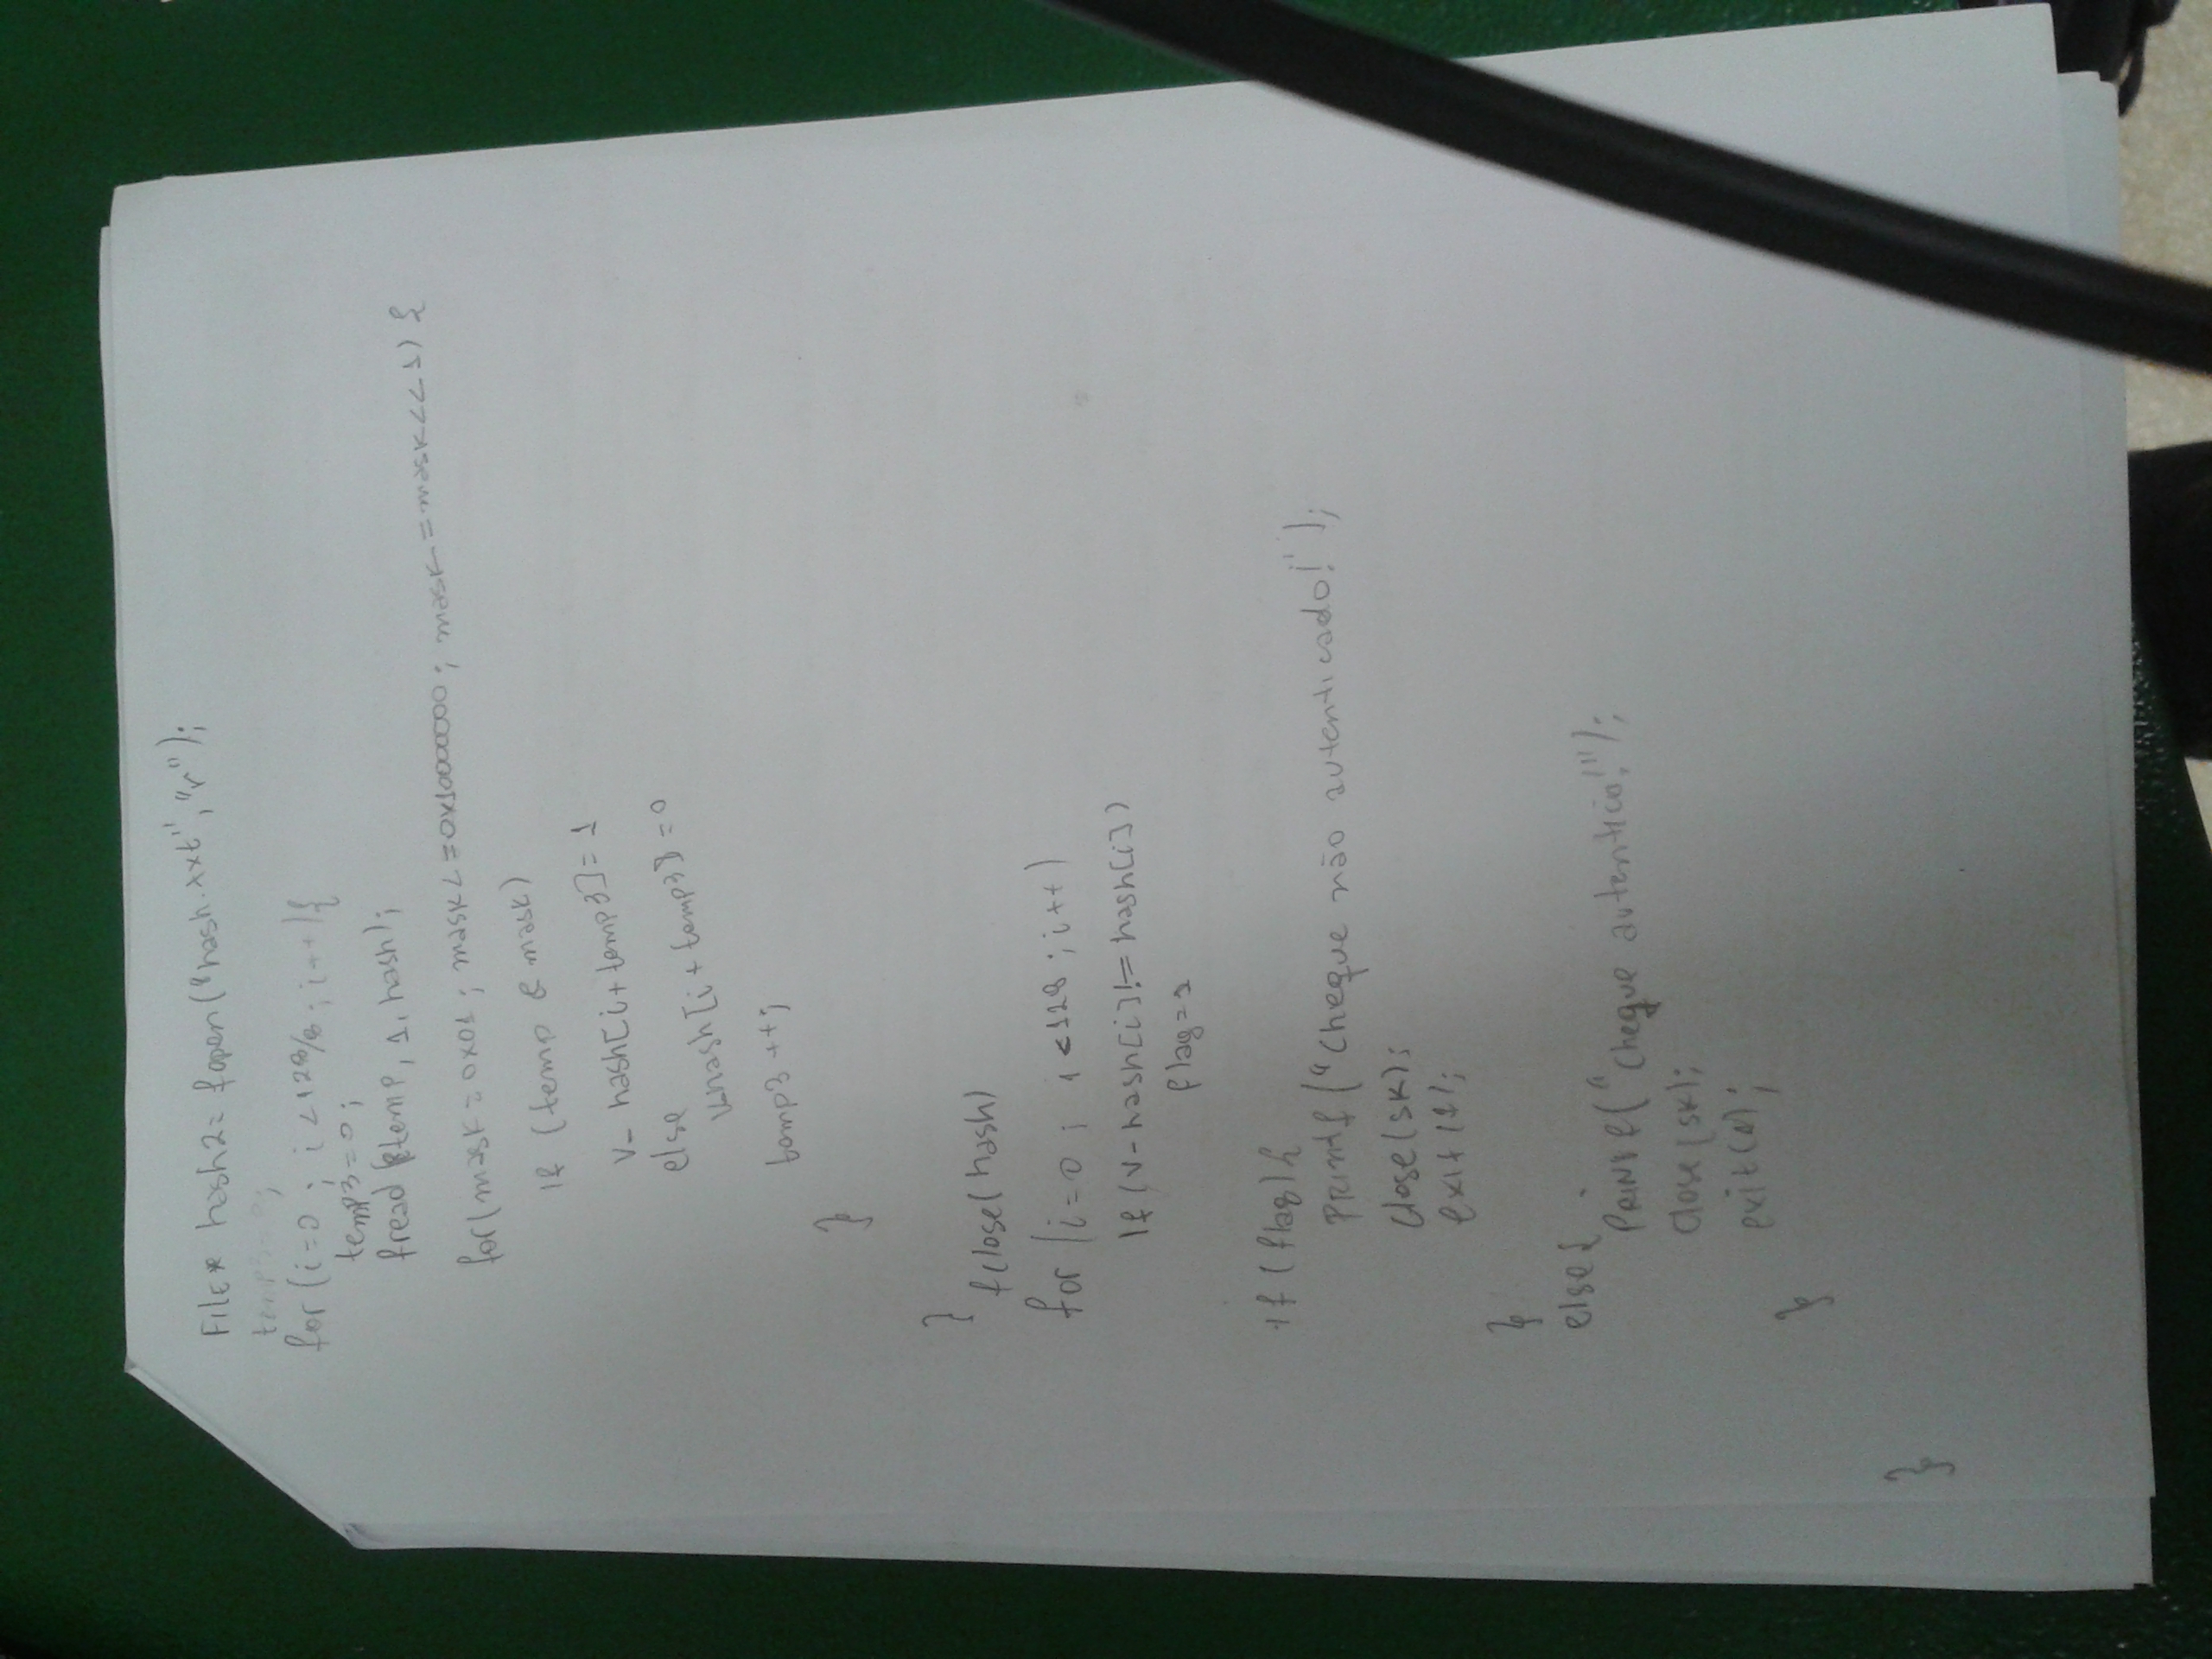 FILE* hash2= fopen("hash.txt", "r");
temp3=0;
for (i=0 ; i <128/8 ; i++){
temp3=0;
fread (&temp, 1, hash);
for(mask=0x01 ; mask<=0x10000000 ; mask=mask<<1) {
If (temp & mask)
v_hash[i+temp3]=1
else
v_hash[i+temp3]=0
temp3++;
}
}
fclose(hash)
for (i=0 ; i<128 ; i++)
If (v_hash[i]!=hash[i])
flag=1
if (flag){
PRintf ("Cheque não autenticado!");
close(sk);
exit(1);
}
else{
PRINtf("Cheque autentico!");
close(sk);
exit(1);
}
}